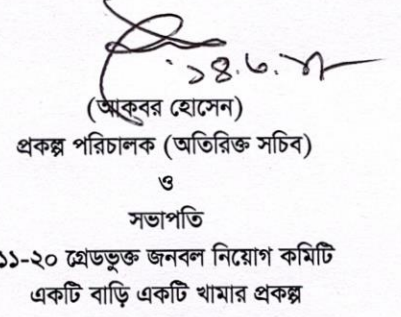 ১৪.৬.১৮
(আকবর হোসেন)
প্রকল্প পরিচালক (অতিরিক্ত সচিব)
ও
সভাপতি
১১-২০ গ্রেডভুক্ত জনবল নিয়োগ কমিটি
একটি বাড়ি একটি খামার প্রকল্প